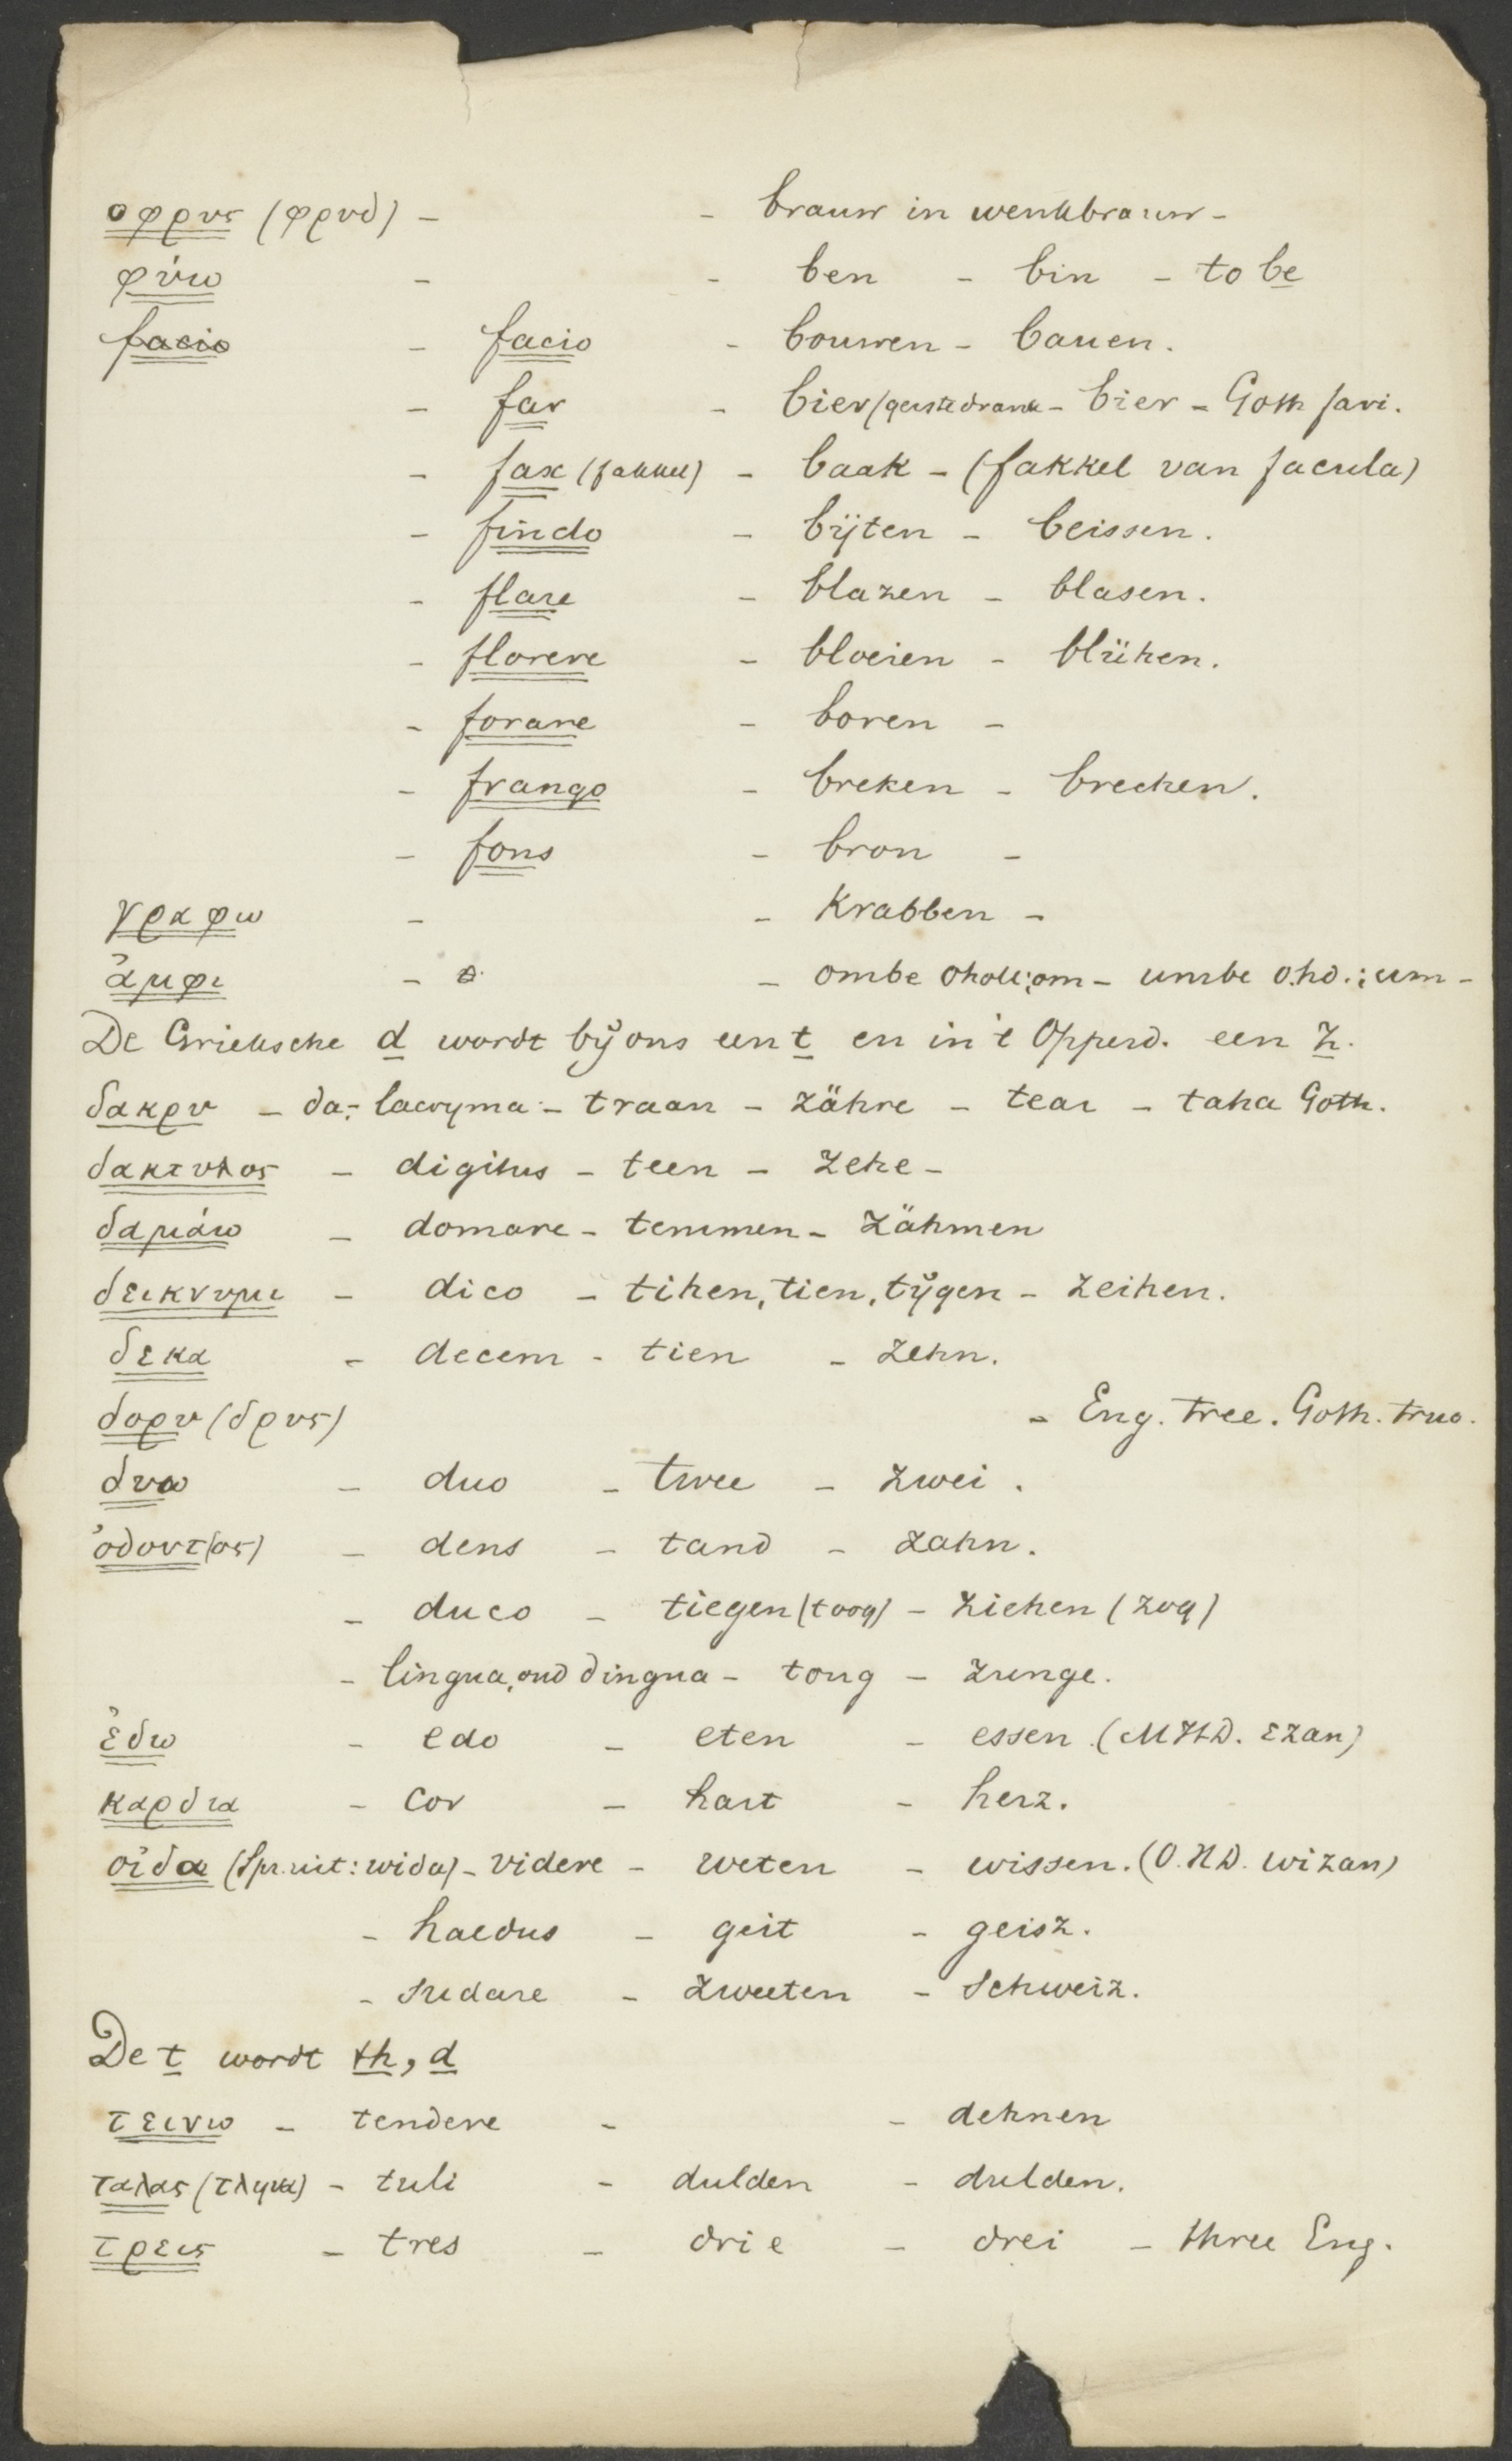 οφρυς (φρυδ) - - brauw in wenkbrauw -
φύω - - ben - bin - to be
facio - facio - bouwen - bauen.
- far - bier (gerstedrank - bier - Goth fari.
- fax (fakkel) - baak - (fakkel van facula)
- findo - bijten - beissen.
- flare - blazen - blasen.
- florere - bloeien - blühen.
- forare - boren -
- frango - breken - brechen.
- fons - bron -
γραφω - - Krabben -
ἀμφι - - ombe oholl; om - umbe o.hd.; um -
De Grieksche d wordt bij ons een t en in 't Opperd. een z.
δακρυ - da; lacryma - traan - zähre - tear - taha Goth.
δακτυλος - digitus - teen - zehe -
δαμάω - domare - temmen - zähmen
δεικνυμι - dico - tihen, tien, tijgen - zeihen.
δεκα - decem - tien - zehn.
δορυ (δρυς) - Eng. tree. Goth. truo.
δυω - duo - twee - zwei.
ὀδοντ(ος) - dens - tand - zahn.
- duco - tiegen (toog) - ziehen (zog)
- lingua, oud dingua - tong - zunge.
ἐδω - edo - eten - essen (MHD. ezan)
καρδια - cor - hart - herz.
οἰδα (Spr. uit: wida) - videre - weten - wissen. (O.HD. wizan)
- haedus - geit - geisz.
- sudare - zweeten - Schweiz.
De t wordt th, d
τεινω - tendere - - dehnen
ταλας (τλημι) - tuli - dulden - dulden.
τρεις - tres - drie - drei - three Eng.